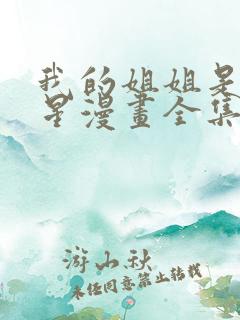 我的姐姐是
星漫畫全集
游山秋
未经同意禁止转载